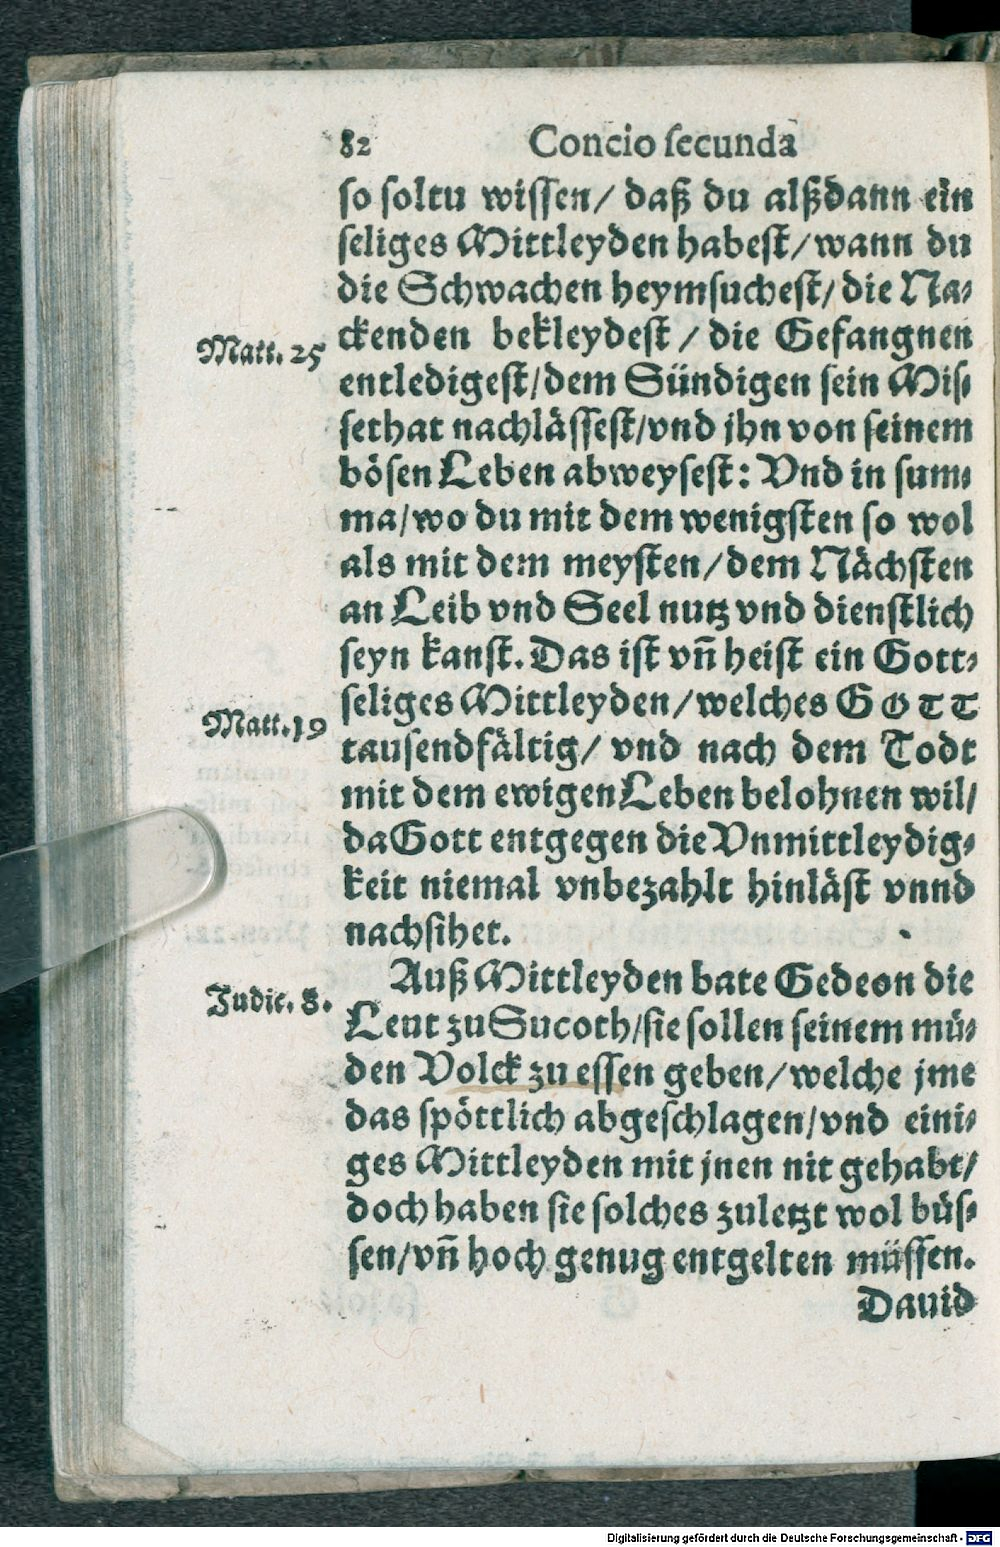 82 Concio secunda
so soltu wissen/ daß du alßdann ein
seliges Mittleyden habest/wann du
die Schwachen heymsuchest/die Na⸗
Matt. 25
ckenden bekleydest / die Gefangnen
entledigest/dem Sündigen sein Mis⸗
sethat nachlässest/vnd jhn von seinem
bösen Leben abweysest: Vnd in sum⸗
ma/wo du mit dem wenigsten so wol
als mit dem meysten/dem Nächsten
an Leib vnd Seel nutz vnd dienstlich
seyn kanst. Das ist vñ heist ein Gott⸗
seliges Mittleyden/welches GOTT
Matt. 19
tausendfältig/ vnd nach dem Todt
mit dem ewigen Leben belohnen wil/
da Gott entgegen die Vnmittleydig⸗
keit niemal vnbezahlt hinläst vnnd
nachsihet.
Auß Mittleyden bate Gedeon die
Judic. 8.
Leut zu Sucoth/sie sollen seinem mü⸗
den Volck zu essen geben/welche jme
das spöttlich abgeschlagen/vnd eini⸗
ges Mittleyden mit jnen nit gehabt/
doch haben sie solches zuletzt wol büs⸗
sen/vñ hoch genug entgelten müssen.
Dauid
Digitalisierung gefördert durch die Deutsche Forschungsgemeinschaft - DFG